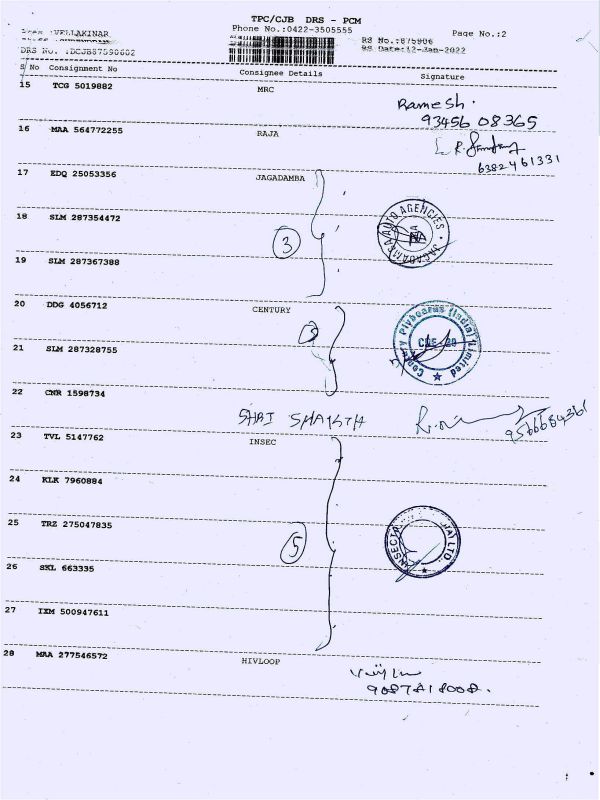 TPC/CJB DRS - PCM
Phone No.:0422-3505555 Page No.:2
Area :VELLAKINAR RS No.:875906
RS Date:12-Jan-2022
DRS No. :DCJB87590602
S No Consignment No Consignee Details Signature
15 TCG 5019882 MRC Ramesh.
93456 08365
16 MAA 564772255 RAJA
6382461331
17 EDQ 25053356 JAGADAMBA
18 SLM 287354472 3 JAGADAMBA AUTO AGENCIES
19 SLM 287367388
20 DDG 4056712 CENTURY
21 SLM 287328755 Century Plyboards (India) Limited
22 CNR 1598734 SHRI SHAKTH
9566684361
23 TVL 5147762 INSEC
24 KLK 7960884
25 TRZ 275047835 5
26 SKL 663335
27 IXM 500947611
28 MAA 277546572 HIVLOOP
9087818008.